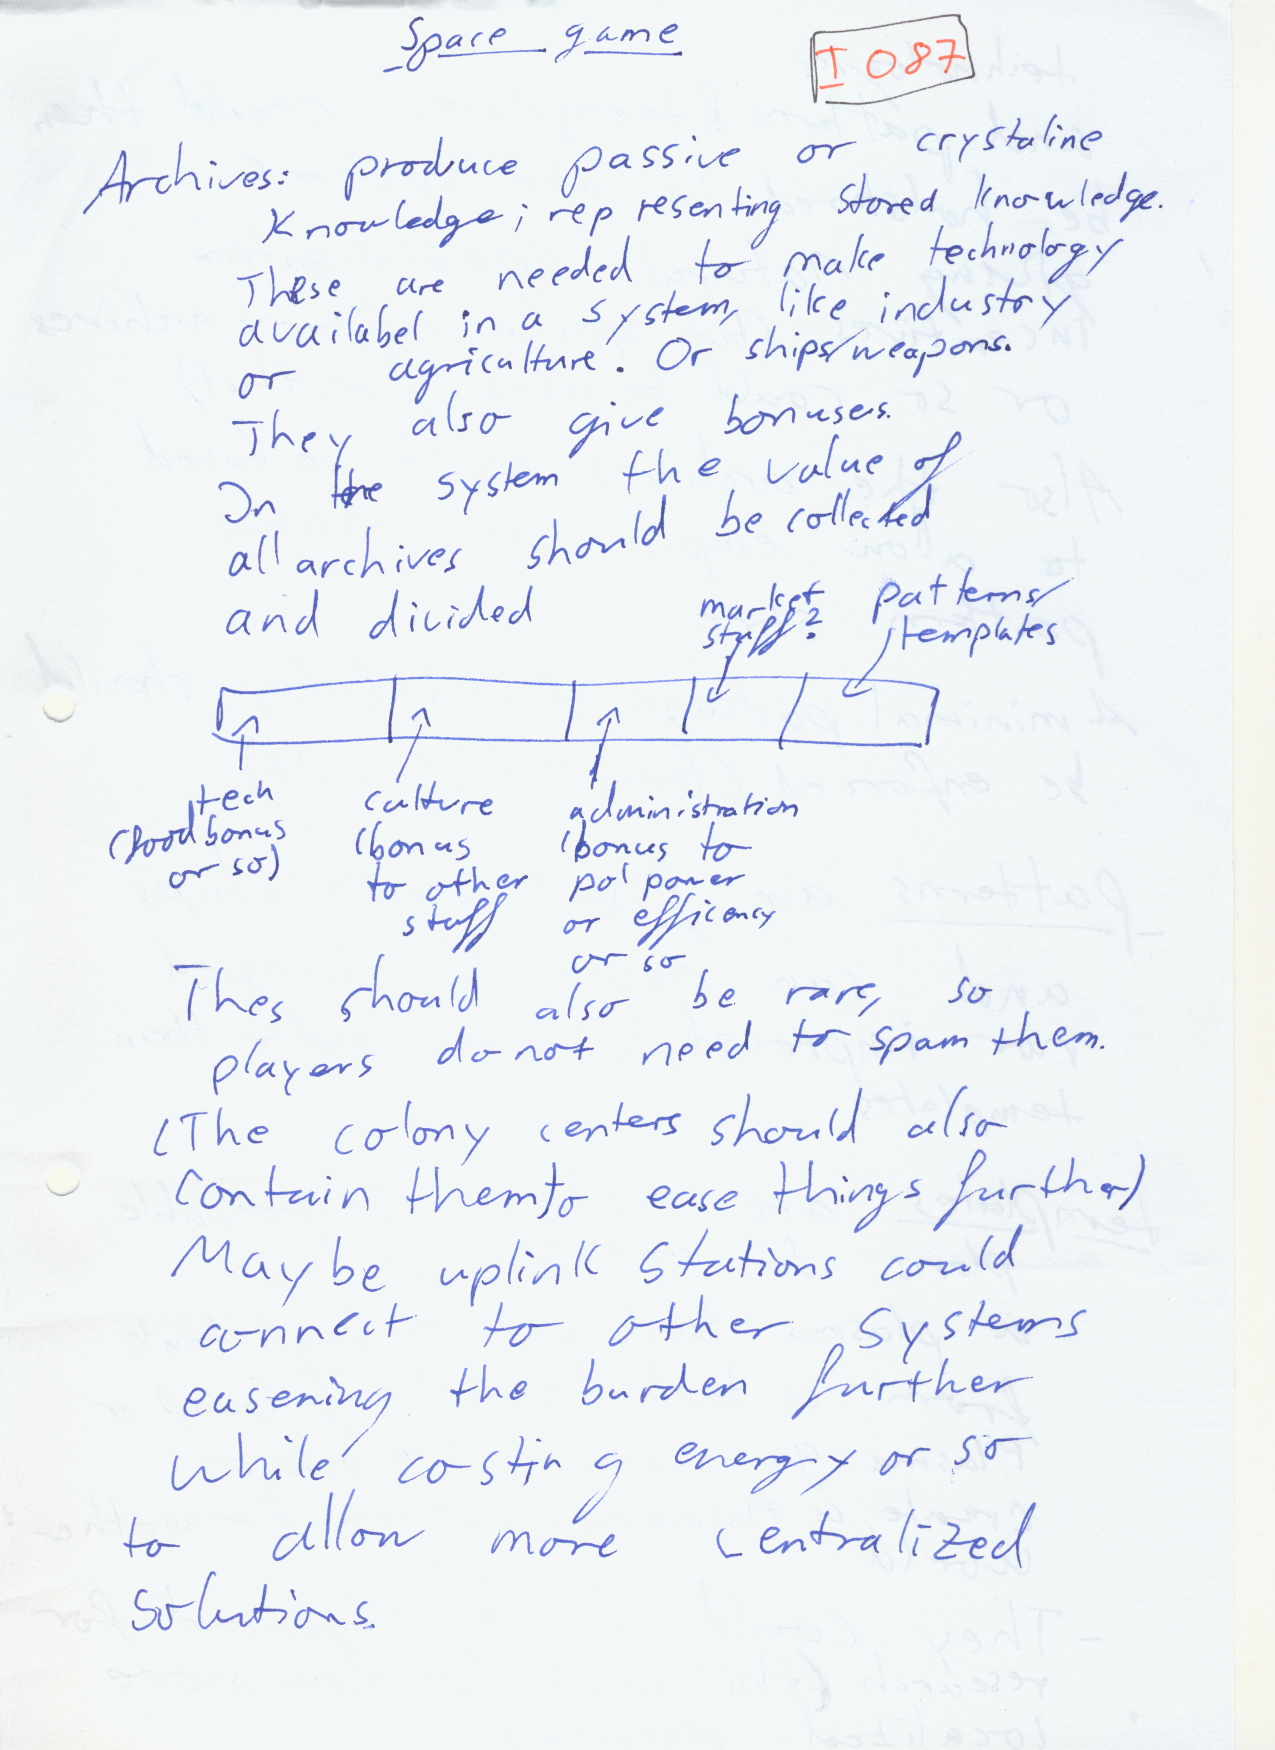 Space game
I 087
Archives: produce passive or crystaline
Knowledge; representing stored knowledge.
These are needed to make technology
availabel in a system, like industry
or agriculture. Or ships/weapons.
They also give bonuses.
In the system the value of
all archives should be collected
and divided
market stuff?
patterns/
templates
tech
(food bonus
or so)
culture
(bonus
to other
stuff
administration
(bonus to
pol power
or efficency
or so
Thes should also be rare, so
players do not need to spam them.
(The colony centers should also
contain them to ease things further)
Maybe uplink stations could
connect to other systems
easening the burden further
while costing energy or so
to allow more centralized
solutions.